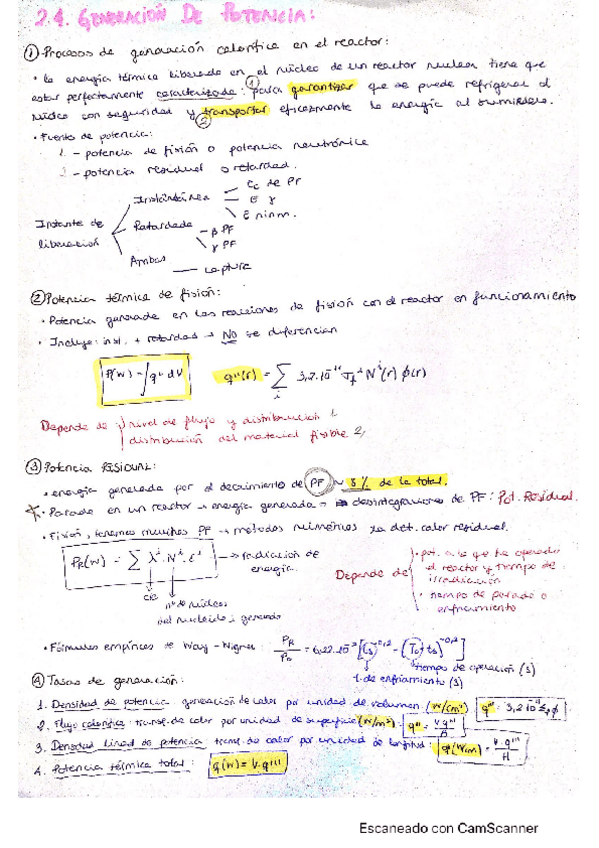 2.4. GENERACIÓN DE POTENCIA:
① Procesos de generación calorífica en el reactor:
• La energía térmica liberada en el núcleo de un reactor nuclear tiene que
estar perfectamente caracterizada: para ① garantizar que se puede refrigerar el
núcleo con seguridad y ② transportar eficazmente la energía al sumidero.
• Fuente de potencia:
1 - potencia de fisión o potencia neutrónica
2 - potencia residual o retardad.
Instante de liberación
Instantánea
Ec de PF
E γ
E n inm.
Retardada
β PF
γ PF
Ambas — captura
② Potencia térmica de fisión:
• Potencia generada en las reacciones de fisión con el reactor en funcionamiento
• Incluye: inst. + retardad → NO se diferencian
P(W) = ∫ q''' dV q'''(r) = Σi 3,2·10⁻¹¹ σf^i N^i(r) ϕ(r)
Depende de nivel de flujo y distribución 1
distribución del material fisible 2,
③ Potencia RESIDUAL:
• energía generada por el decaimiento de PF ~ 8% de la total.
Parada en un reactor → energía generada → desintegraciones de PF: Pot. Residual.
• Fisión, tenemos muchos PF → métodos numéricos xa det. calor residual.
PR(W) = Σ λ^i · N^i · E^i → radiación de energía.
cte
nº de núcleos del nucleido i generado
Depende de
• pot. a la que ha operado el reactor y tiempo de irradiación
• tiempo de parada o enfriamiento
• Fórmulas empíricas de Way-Wigner: PR/P0 = 6,22·10⁻² [ts^-0,2 - (T0+ts)^-0,2]
tiempo de operación (s)
t. de enfriamiento (s)
④ Tasas de generación:
1. Densidad de potencia: generación de calor por unidad de volumen (W/cm³) q''' = 3,2·10⁻¹¹ Σf ϕ
2. Flujo calorífico: transf. de calor por unidad de superficie (W/m²) q'' = V·q'''/A
3. Densidad lineal de potencia: transf. de calor por unidad de longitud: q'(W/m) = V·q'''/H
4. Potencia térmica total: q(W) = V·q'''
Escaneado con CamScanner